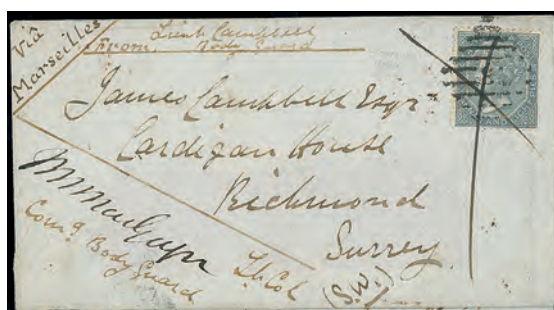 Viâ
Marseilles
From Lieut Campbell
Body Guard
James Campbell Esqr
Cardigan House
Richmond
Surrey
(S.W.)
Comg Body Guard
Lt Col